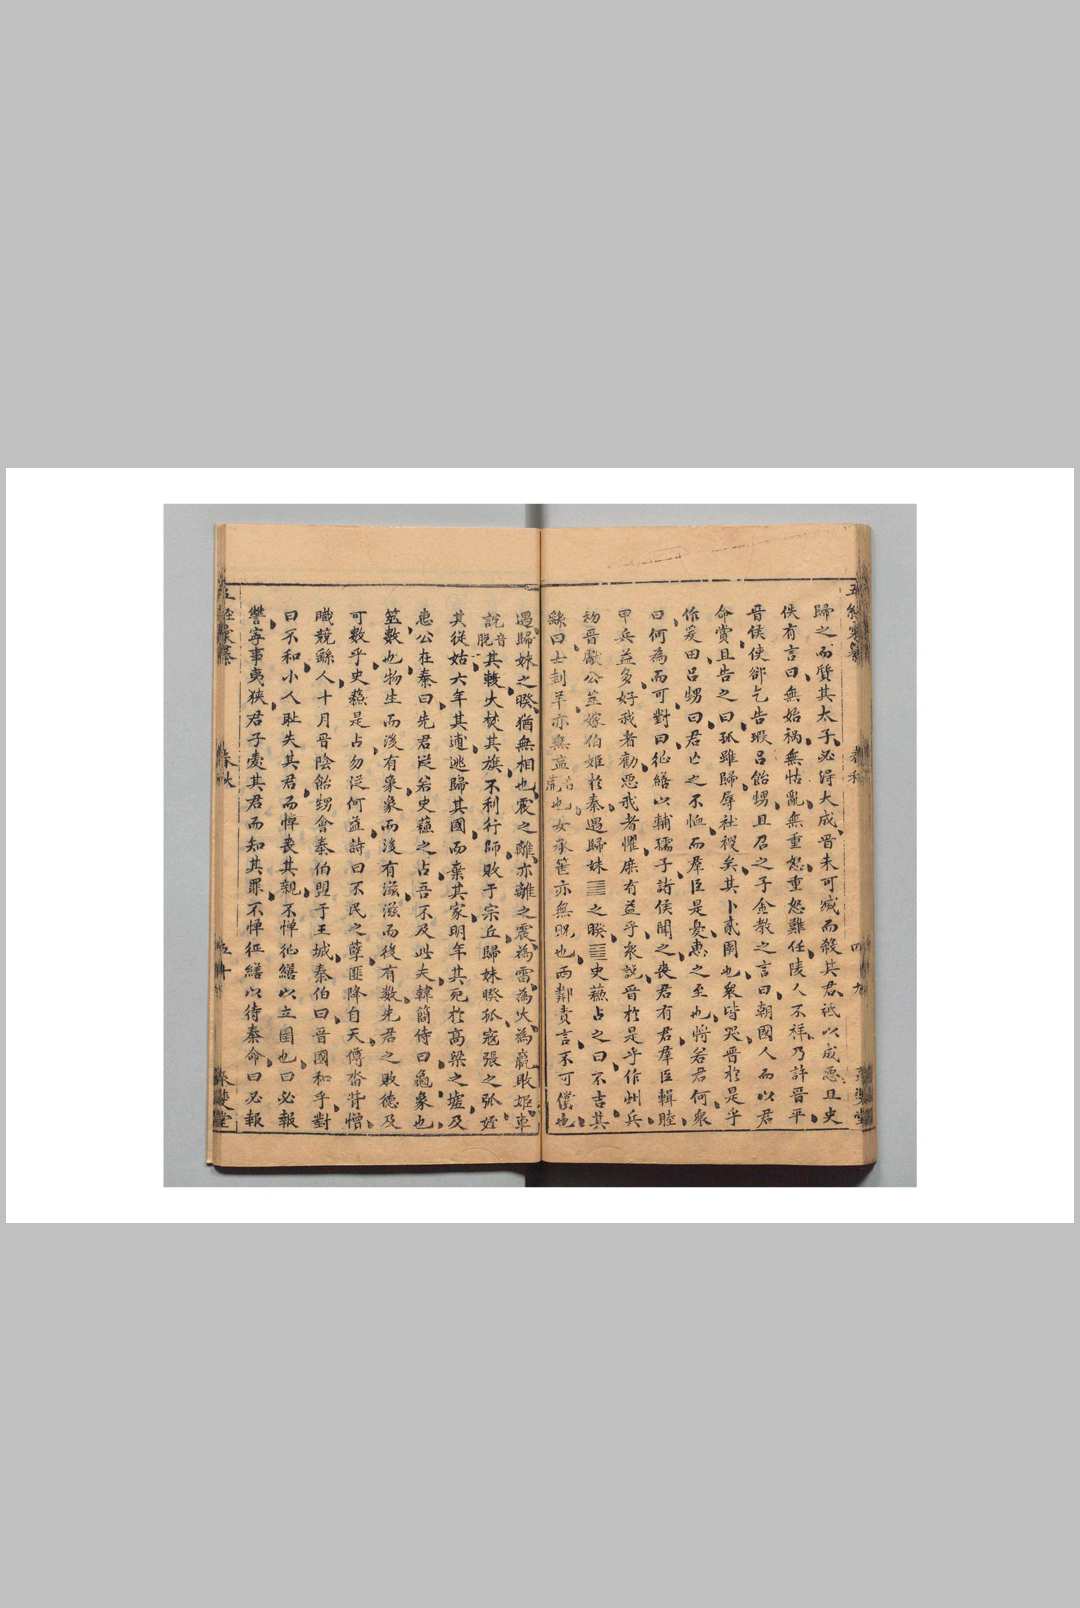 歸之而質其太子必得大成晉未可滅而殺其君祗以成惡且史
佚有言曰無始禍無怙亂無重怒重怒難任陵人不祥乃許晉平
晉侯使郤乞告瑕呂飴甥且召之子金教之言曰朝國人而以君
命賞且告之曰孤雖歸辱社稷矣其卜貳圉也衆皆哭晉於是乎
作爰田呂甥曰君亡之不恤而羣臣是憂惠之至也將若君何衆
曰何為而可對曰征繕以輔孺子諸侯聞之喪君有君羣臣輯睦
甲兵益多好我者勸惡我者懼庶有益乎衆說晉於是乎作州兵
初晉獻公筮嫁伯姬於秦遇歸妹䷵之睽䷥史蘇占之曰不吉其
繇曰士刲羊亦無衁也女承筐亦無貺也西鄰責言不可償也
遇歸妹之睽猶無相也震之離亦離之震為雷為火為嬴敗姬車
說音脫其輹火焚其旗不利行師敗于宗丘歸妹睽孤寇張之弧姪
其從姑六年其逋逃歸其國而棄其家明年其死於高梁之墟及
惠公在秦曰先君從若史蘇之占吾不及此夫韓簡侍曰龜象也
筮數也物生而後有象象而後有滋滋而後有數先君之敗德及
可數乎史蘇是占勿從何益詩曰不民之孽匪降自天僔沓背憎
職競繇人十月晉陰飴甥會秦伯盟于王城秦伯曰晉國和乎對
曰不和小人耻失其君而悼喪其親不憚征繕以立圉也曰必報
讐寧事夷狄君子愛其君而知其罪不憚征繕以待秦命曰必報
春秋
五十